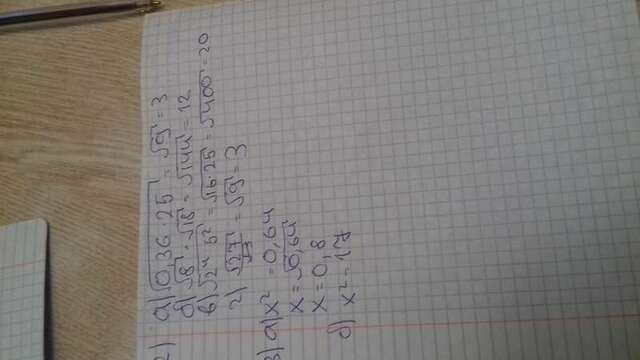 2) а) √0,36 · 25 = √9 = 3
б) √8 · √18 = √144 = 12
в) √2⁴ 5² = √16 · 25 = √400 = 20
г) √27/√3 = √9 = 3
3) а) x² = 0,64
x = √0,64
x = 0,8
б) x² = 17